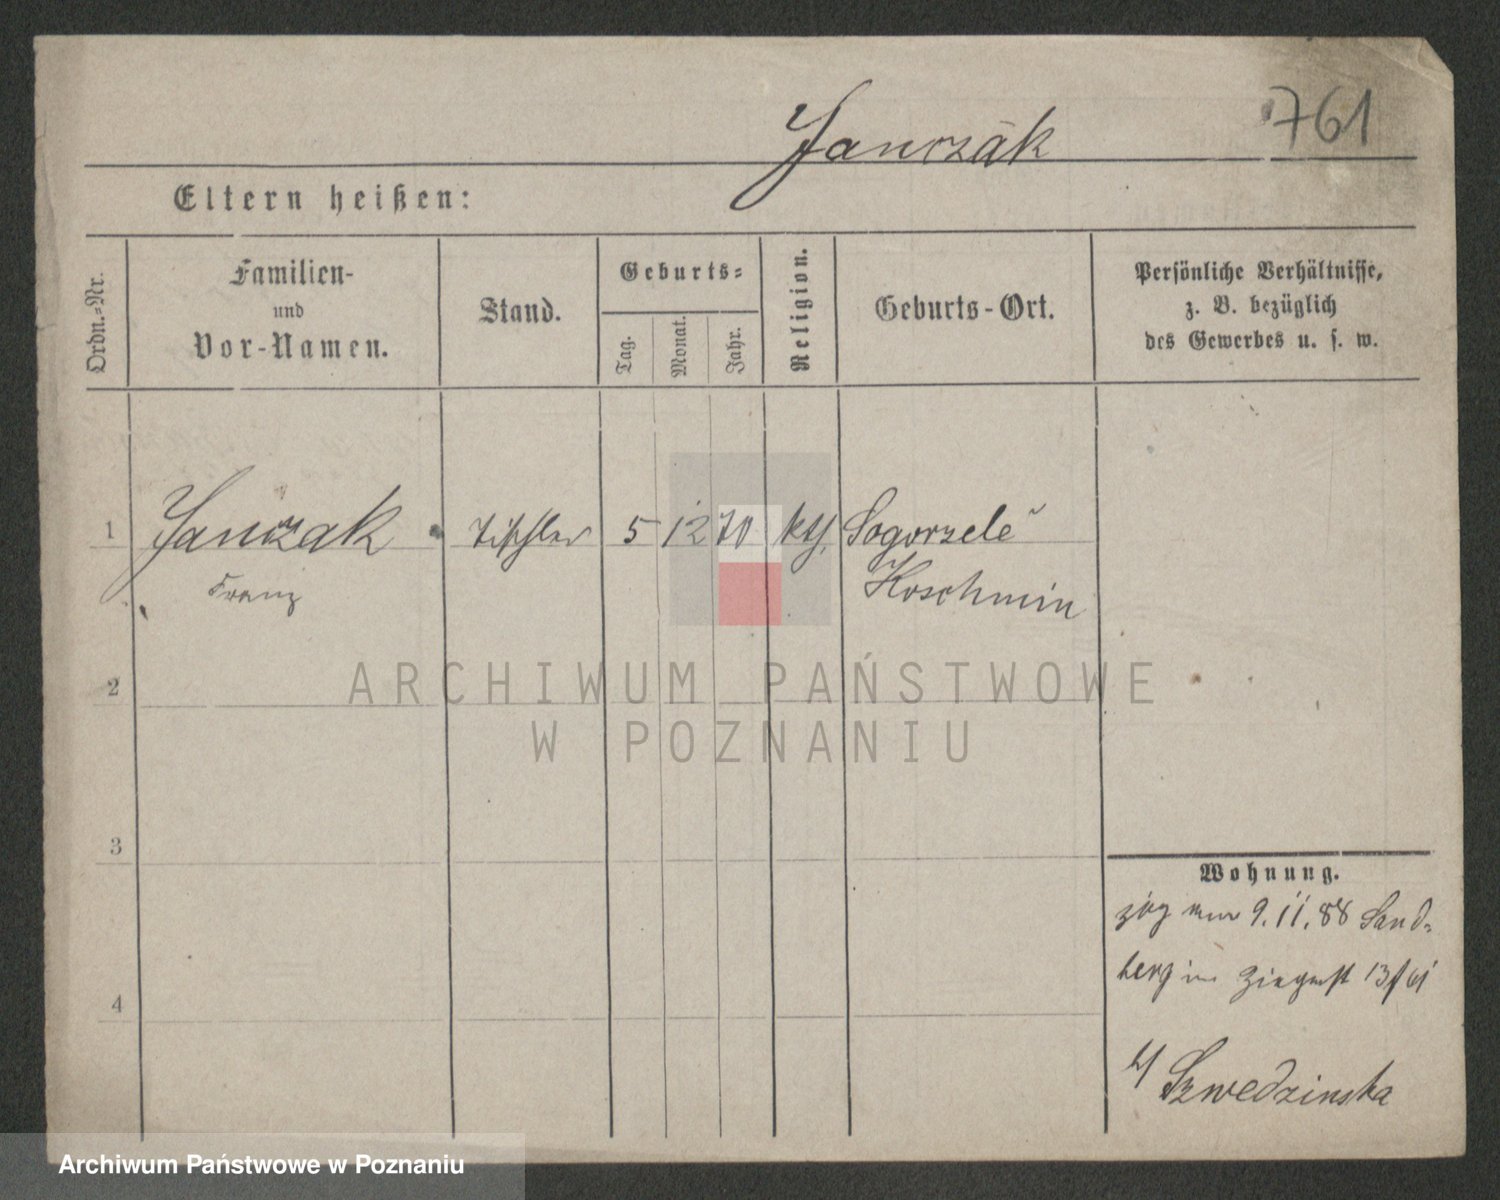 Janczak
761
Eltern heißen:
Ordn.-Nr.
Familien-
und
Vor-Namen.
Stand.
Geburts-
Tag.
Monat.
Jahr.
Religion.
Geburts-Ort.
Persönliche Verhältnisse,
z. B. bezüglich
des Gewerbes u. s. w.
1
Janczak
Tischler
5
12
70
kth.
Pogorzele
Franz
Koschmin
2
3
4
Wohnung.
zog 9.11.88 Sand-
berg 13/61
b/ Szwedzinska
ARCHIWUM PAŃSTWOWE
W POZNANIU
Archiwum Państwowe w Poznaniu